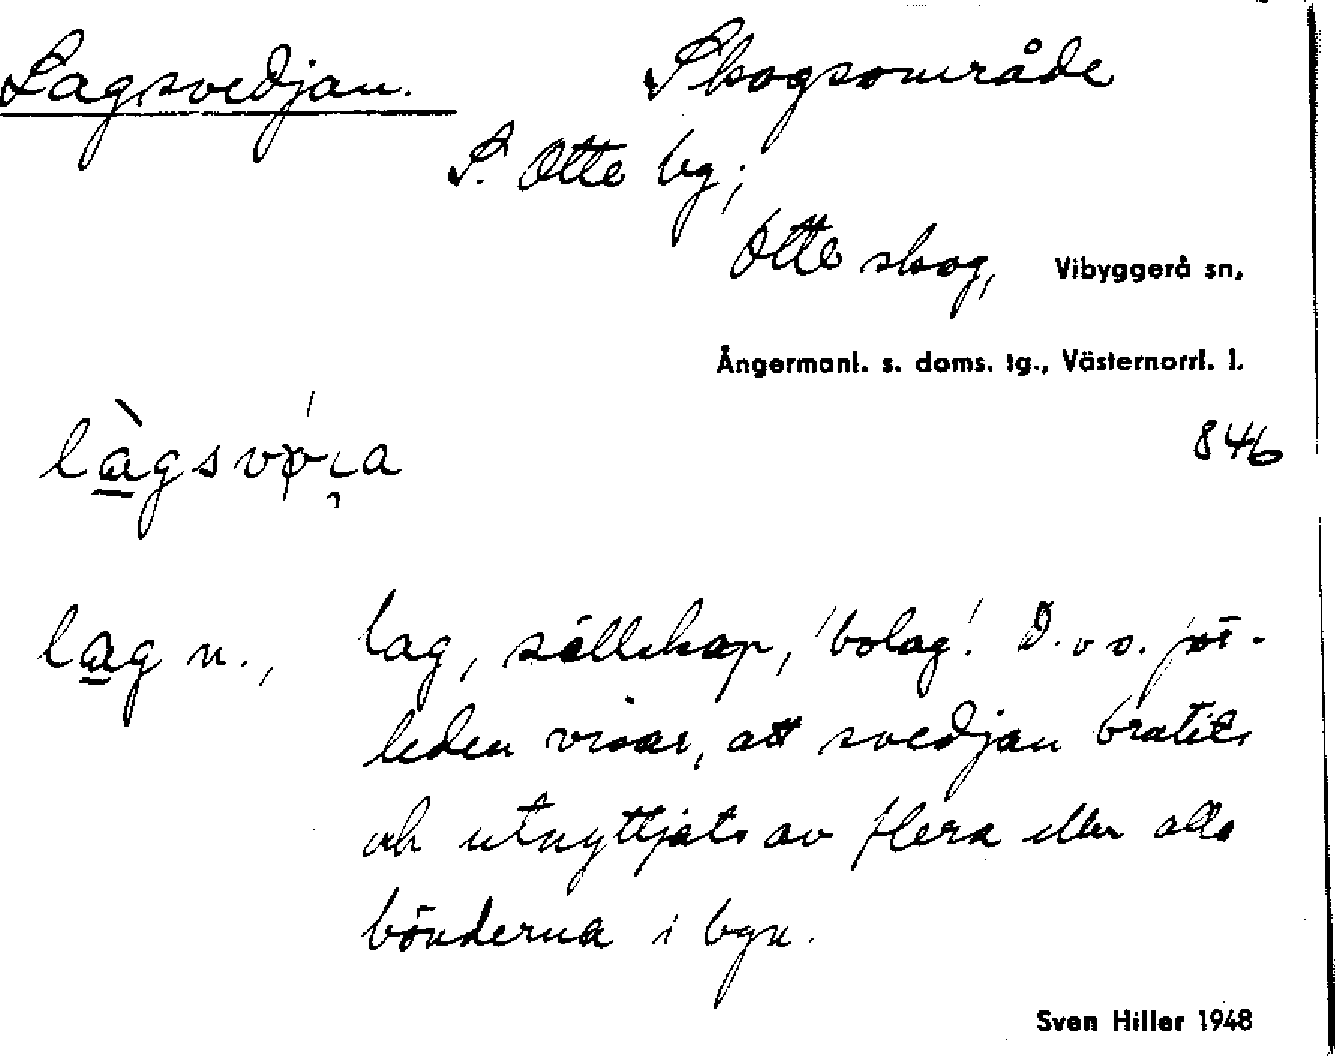 Lagsvedjan. Skogsområde
S. Otte bg;
Otte skog, Vibyggerå sn,
Ångermanl. s. doms. tg., Västernorrl. l.
846
lag n., lag, sällskap, 'bolag'. D.v.s. för-
leden visar, att svedjan bratits
och utnyttjats av flera eller alla
bönderna i byn.
Sven Hiller 1948